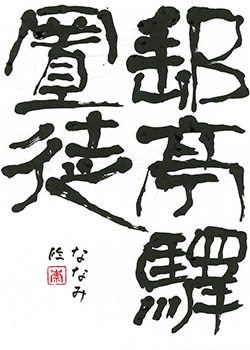 郵亭驛
置徒
ななみ
臨